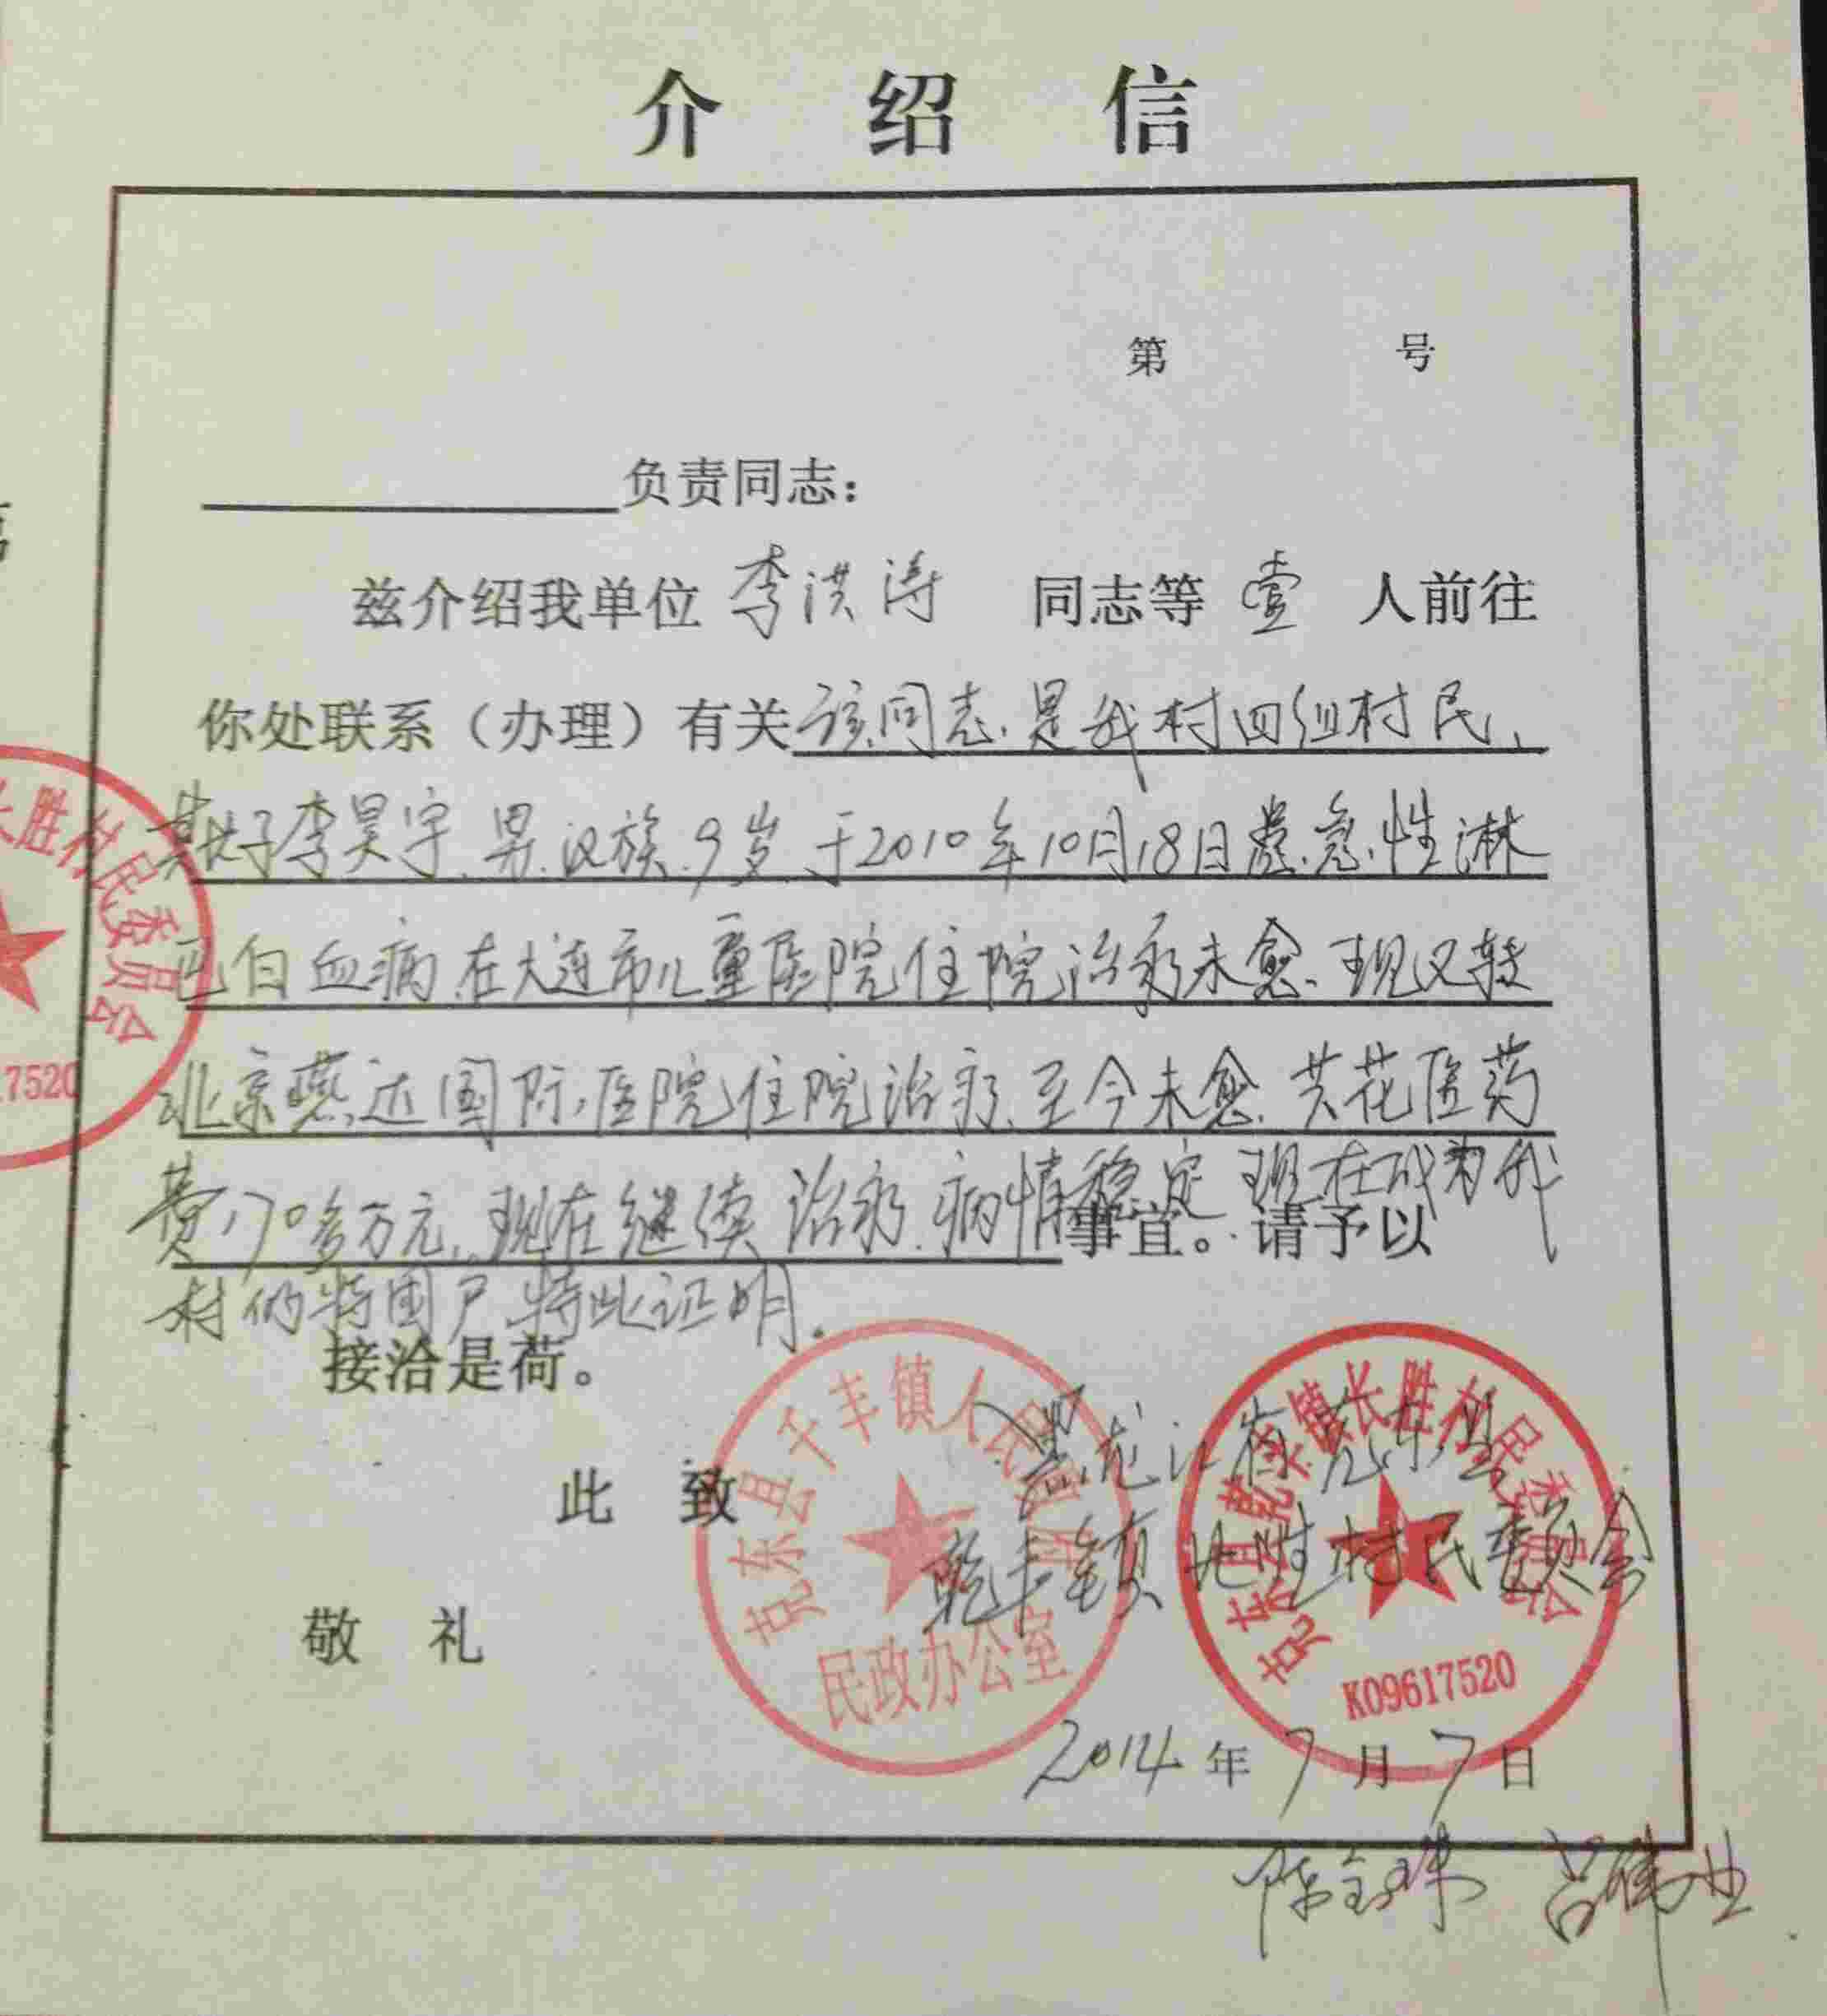 介绍信
第 号
负责同志：
兹介绍我单位 李洪涛 同志等 壹 人前往
你处联系（办理）有关该同志是我村四组村民，
其子李昊宇、男、汉族、9岁、于2010年10月18日患急性淋
巴白血病、在大连市儿童医院住院治疗未愈、现又转
北京燕达国际医院住院治疗、至今未愈、共花医药
费70多万元、现在继续治疗、病情稳定 现在成为我
事宜。请予以
村的特困户 特此证明。
接洽是荷。
此 致
敬 礼
黑龙江省克东县
乾丰镇长胜村民委员会
克东县千丰镇人民政府
民政办公室
克东县乾丰镇长胜村民委员会
K09617520
2014 年 7 月 7 日
长胜村民委员会
7520